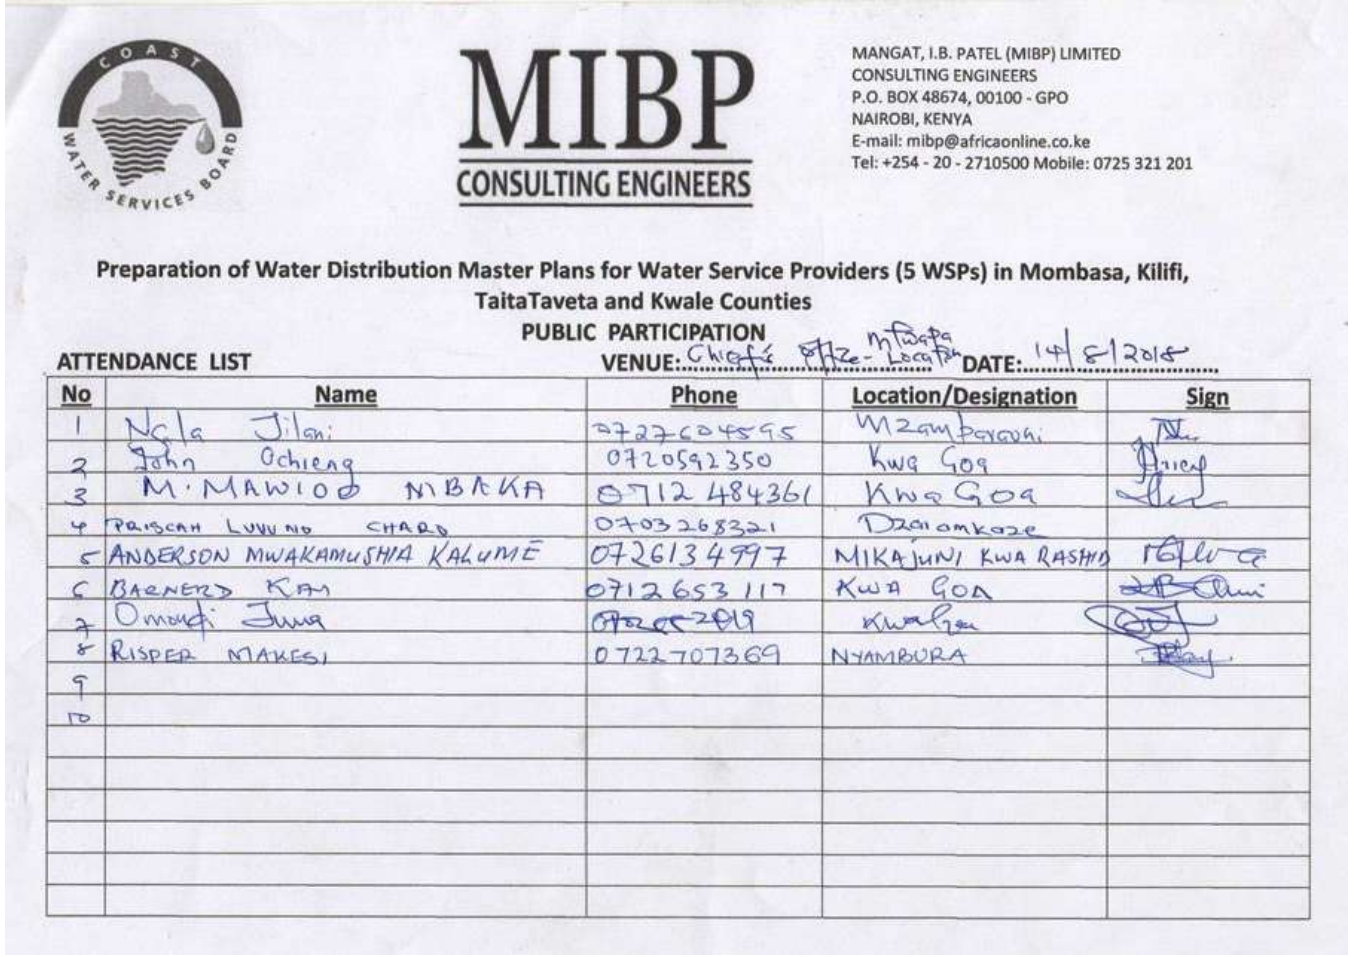 COAST
WATER SERVICES BOARD
MIBP
CONSULTING ENGINEERS
MANGAT, I.B. PATEL (MIBP) LIMITED
CONSULTING ENGINEERS
P.O. BOX 48674, 00100 - GPO
NAIROBI, KENYA
E-mail: mibp@africaonline.co.ke
Tel: +254 - 20 - 2710500 Mobile: 0725 321 201
Preparation of Water Distribution Master Plans for Water Service Providers (5 WSPs) in Mombasa, Kilifi,
TaitaTaveta and Kwale Counties
PUBLIC PARTICIPATION
ATTENDANCE LIST VENUE: Chief's office - Mtwapa Location DATE: 14/8/2018
No Name Phone Location/Designation Sign
1 Ngla Jilani 0727604595
2 John Ochieng 0720592350 Kwa Goa
3 M. MAWIOO MBAKA 0712 484361 Kwa Goa
4 PRISCAH LUVUNO CHARO 0703268321
5 ANDERSON MWAKAMUSHIA KALUME 0726134997 MIKAJUNI KWA RASHID
6 BARNERD KAY 0712653117 KWA GOA
7 Omondi Juma
8 RISPER MAKESI 0722707369 NYAMBURA
9
10